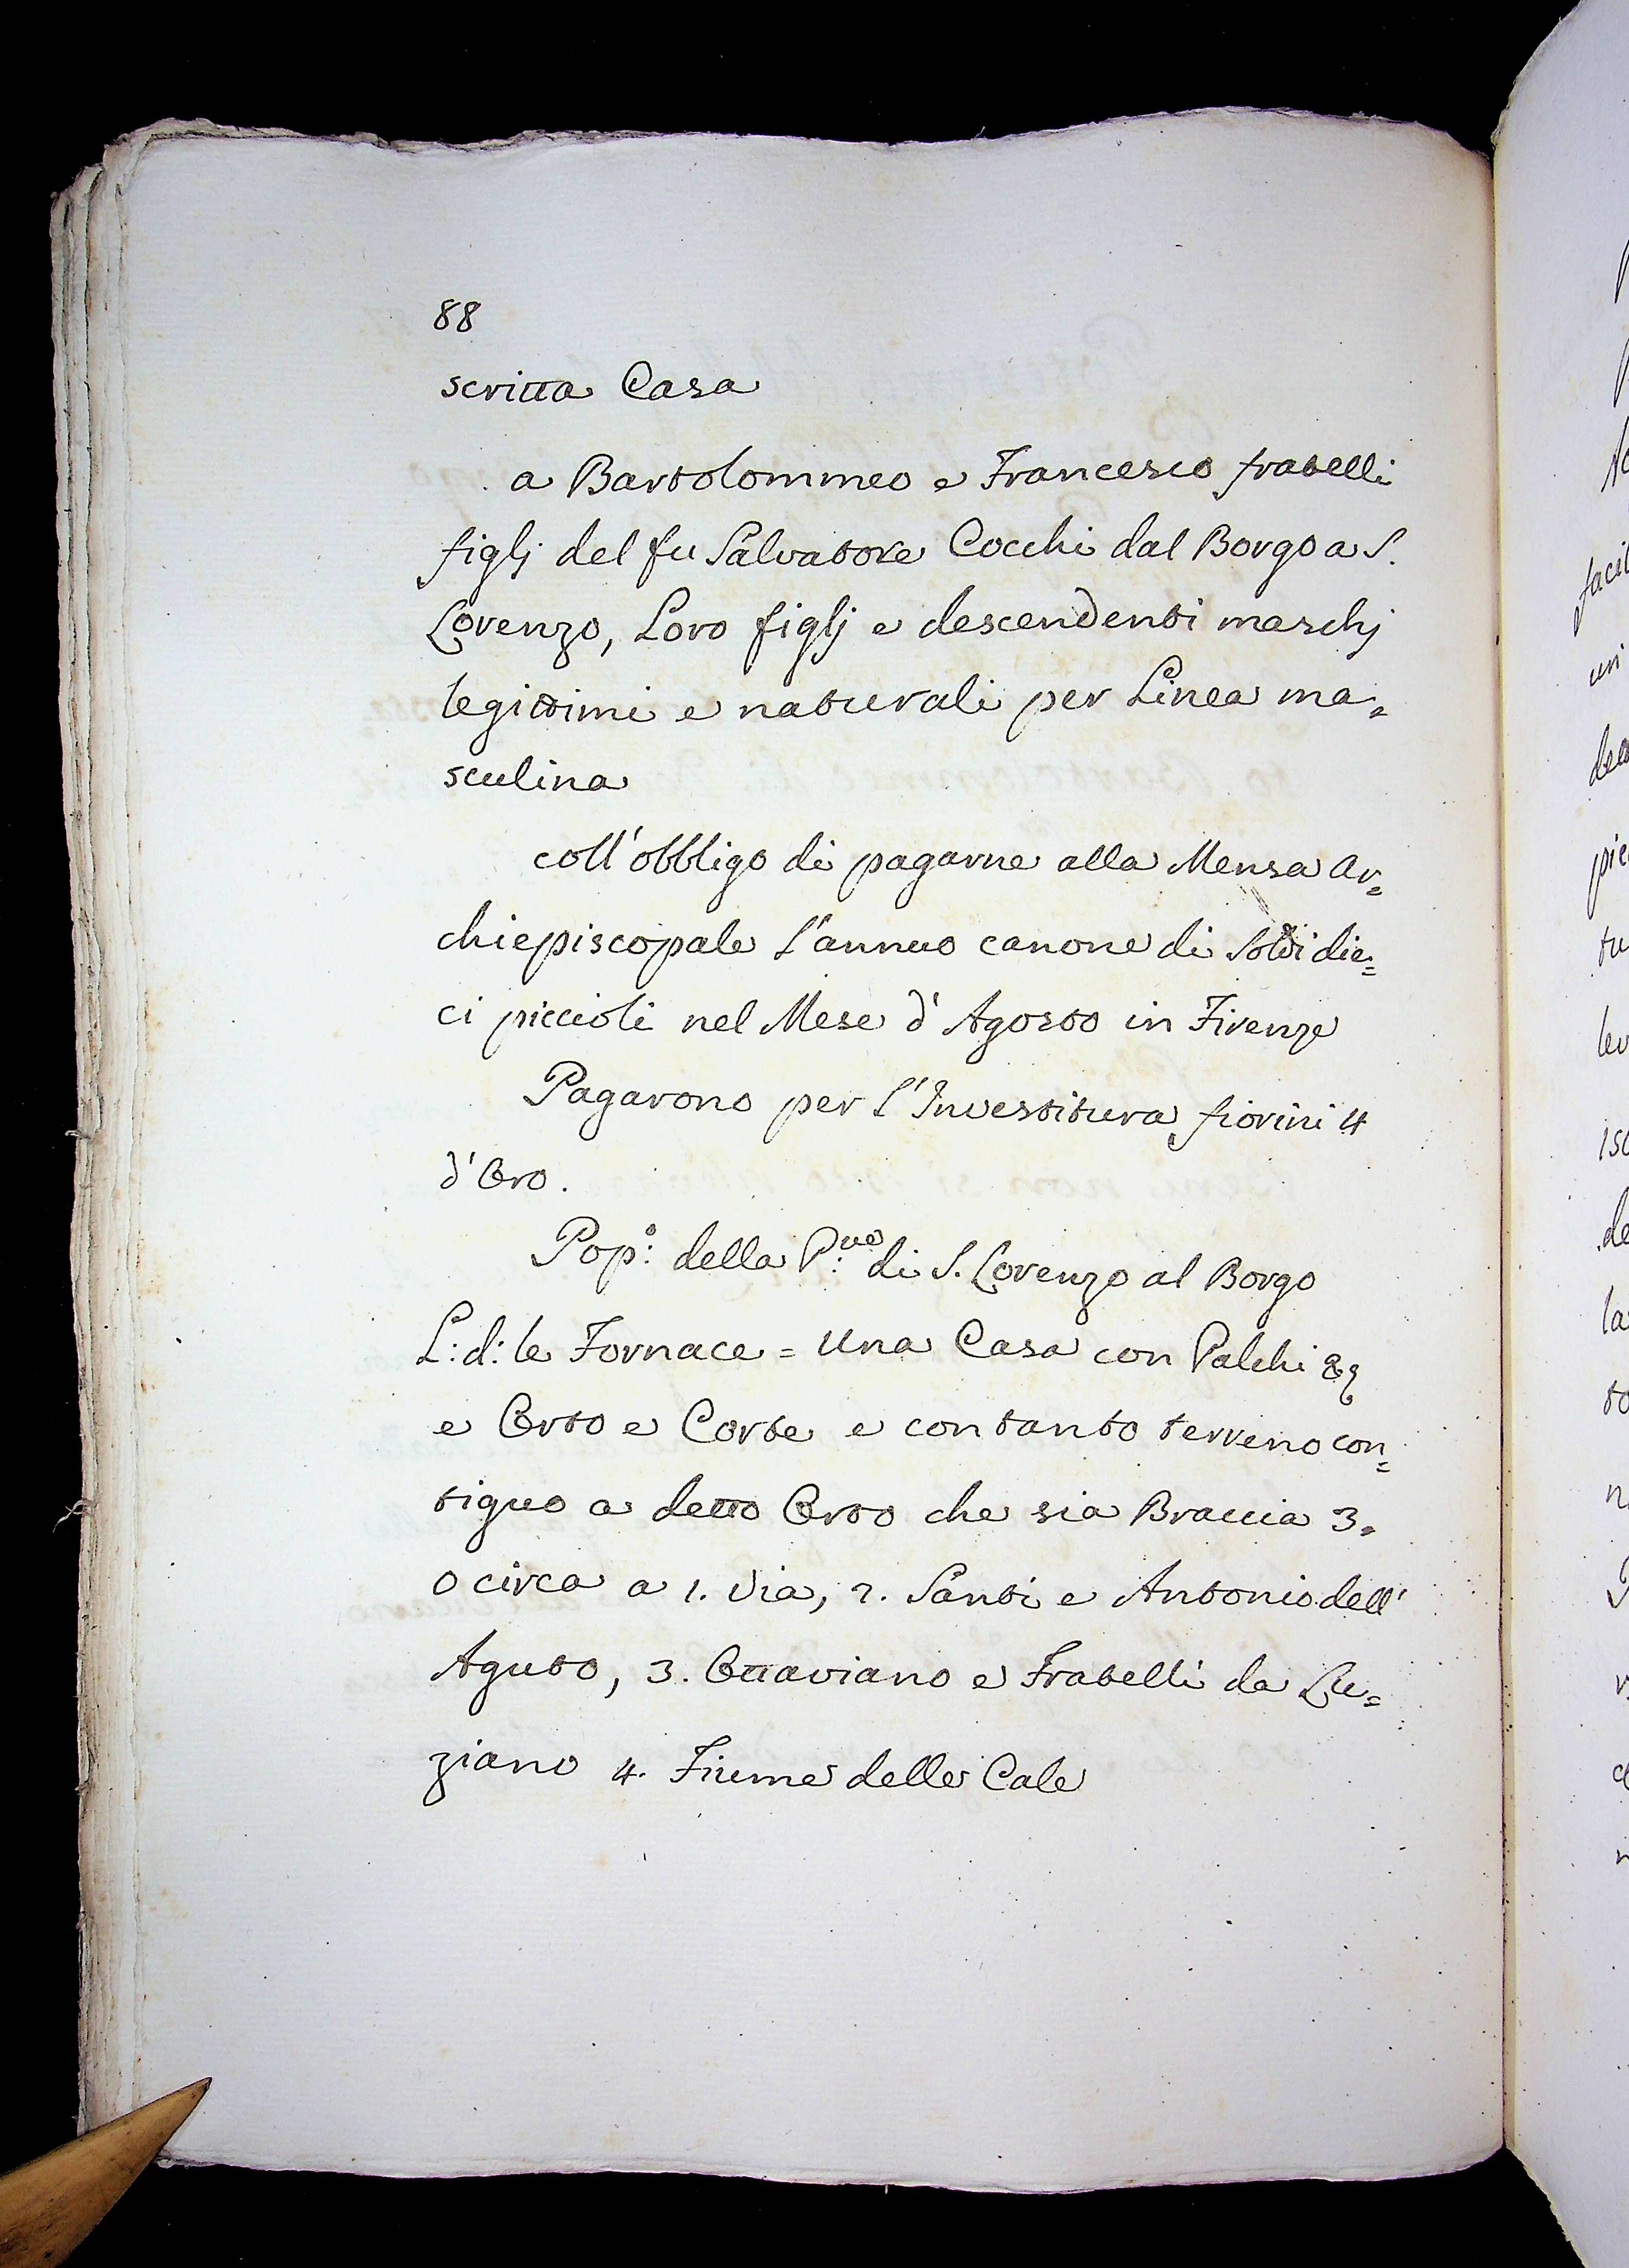 88
scritta Casa
a Bartolommeo e Francesco fratelli
figlj del fu Salvatore Cocchi dal Borgo a S.
Lorenzo, Loro figlj e descendenti maschj
legittimi e naturali per Linea ma=
sculina
coll'obbligo di pagarne alla Mensa Ar=
chiepiscopale l'annuo canone di Soldi die=
ci piccioli nel Mese d'Agosto in Firenze
Pagarono per l'Investitura fiorini 4
d'Oro.
Pop:º della P:ve di S. Lorenzo al Borgo
L: d: le Fornace = Una Casa con Palchi &c
e Orto e Corte e con tanto terreno con=
tiguo a detto Orto che sia Braccia 3.
o circa a 1. Via, 2. Santi e Antonio dell'
Aguto, 3. Ottaviano e Fratelli da Lu=
ziano 4. Fiume delle Cale